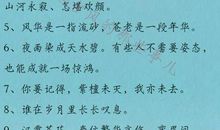 山河永寂、怎堪欢颜。
5、风华是一指流砂,苍老是一段年华。
6、夜雨染成天水碧。有些人不需要姿态,
也能成就一场惊鸿。
7、你要记得,紫檀未灭,我亦未去。
8、谁在岁月里长长叹息。